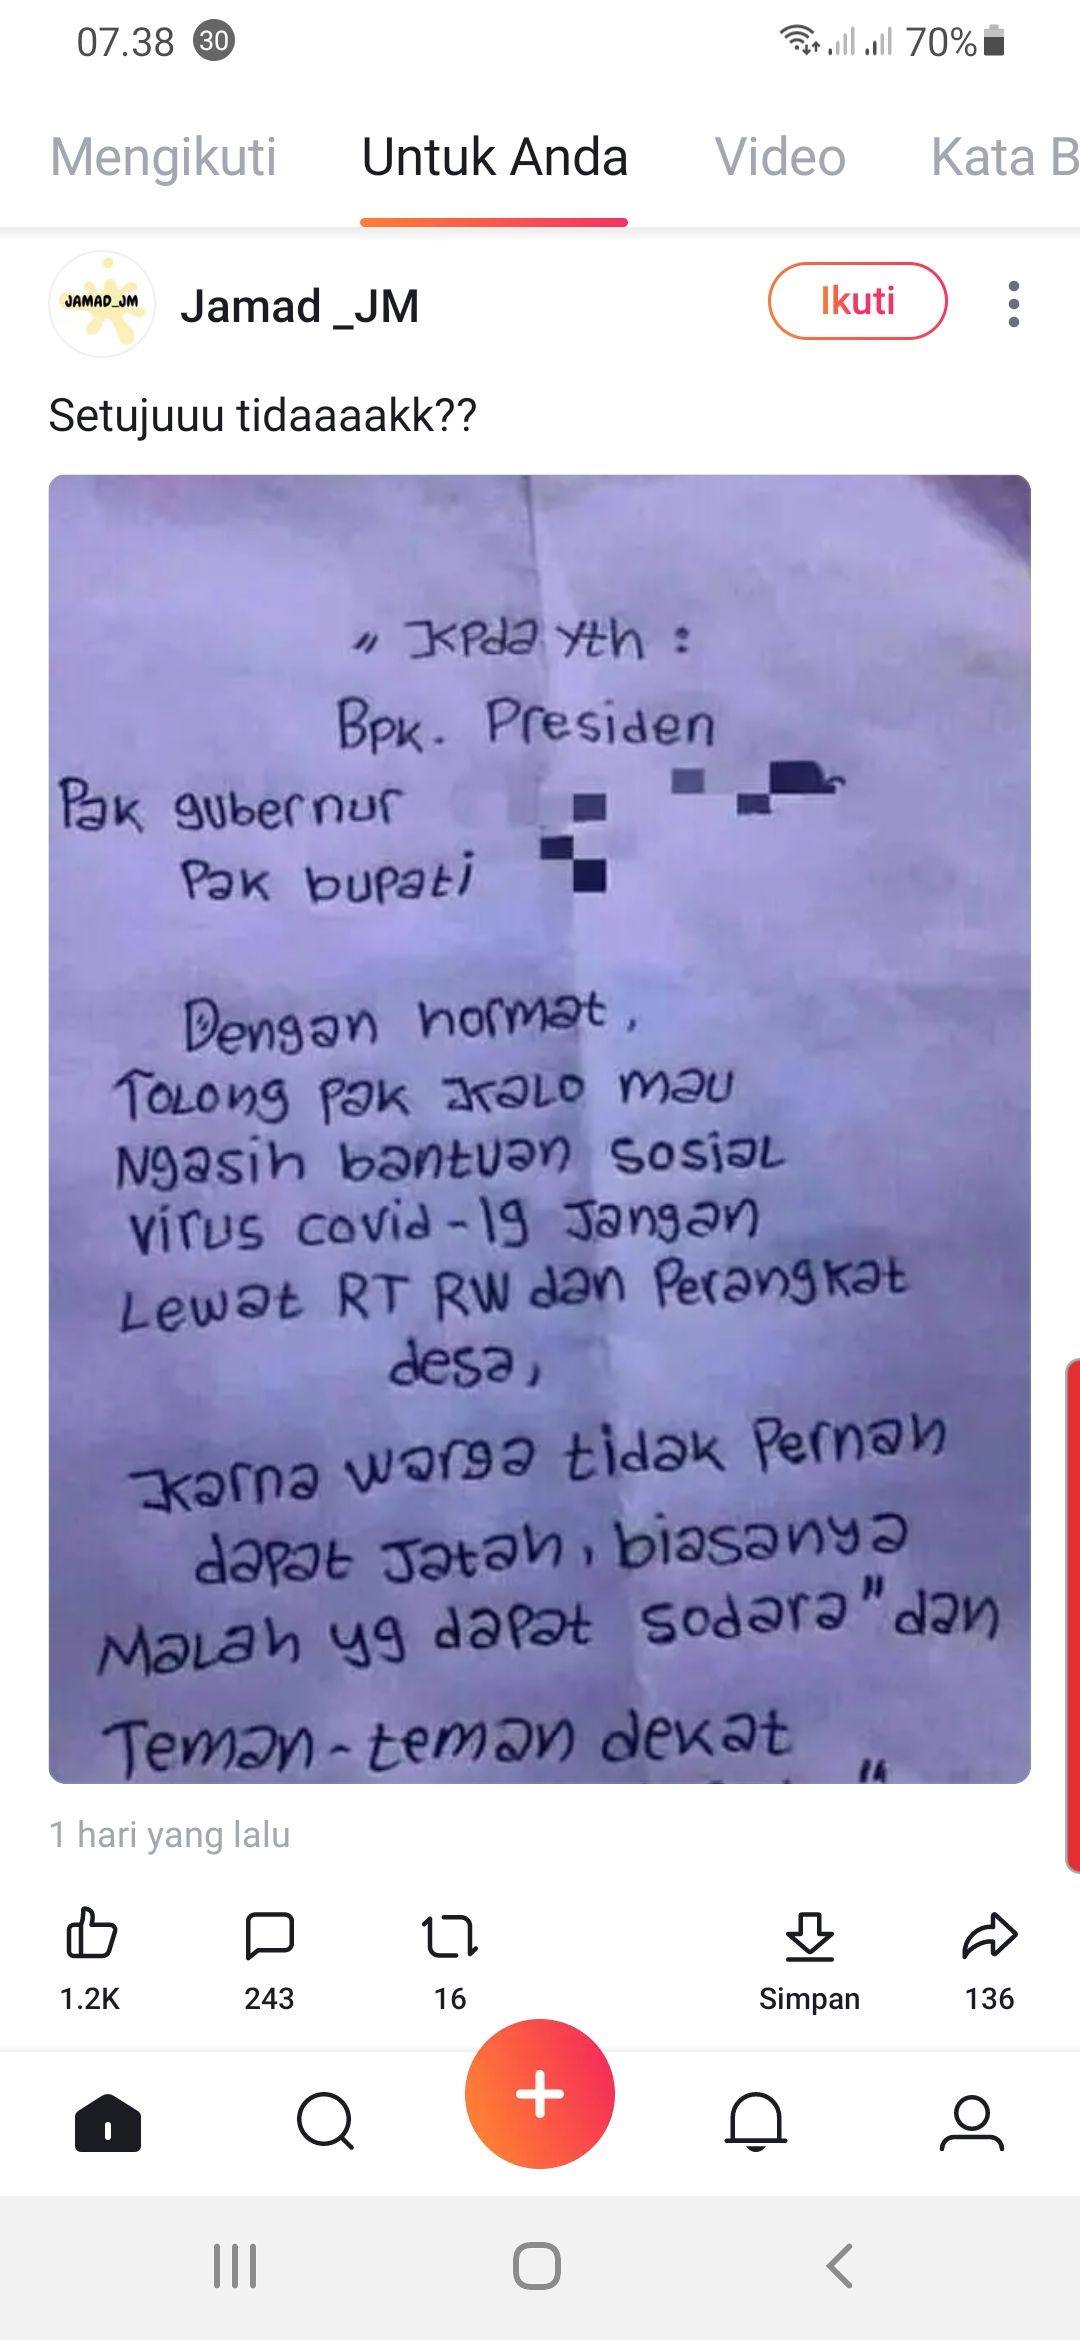 07.38 30 70%
Mengikuti Untuk Anda Video Kata B
JAMAD_JM
Jamad _JM Ikuti
Setujuuu tidaaaakk??
" Kpda Yth :
Bpk. Presiden
Pak gubernur
Pak bupati
Dengan hormat,
Tolong pak Kalo mau
Ngasih bantuan sosial
virus covid-19 Jangan
Lewat RT RW dan Perangkat
desa,
Karna warga tidak Pernah
dapat Jatah, biasanya
Malah yg dapat sodara" dan
Teman-teman dekat
1 hari yang lalu
1.2K 243 16 Simpan 136